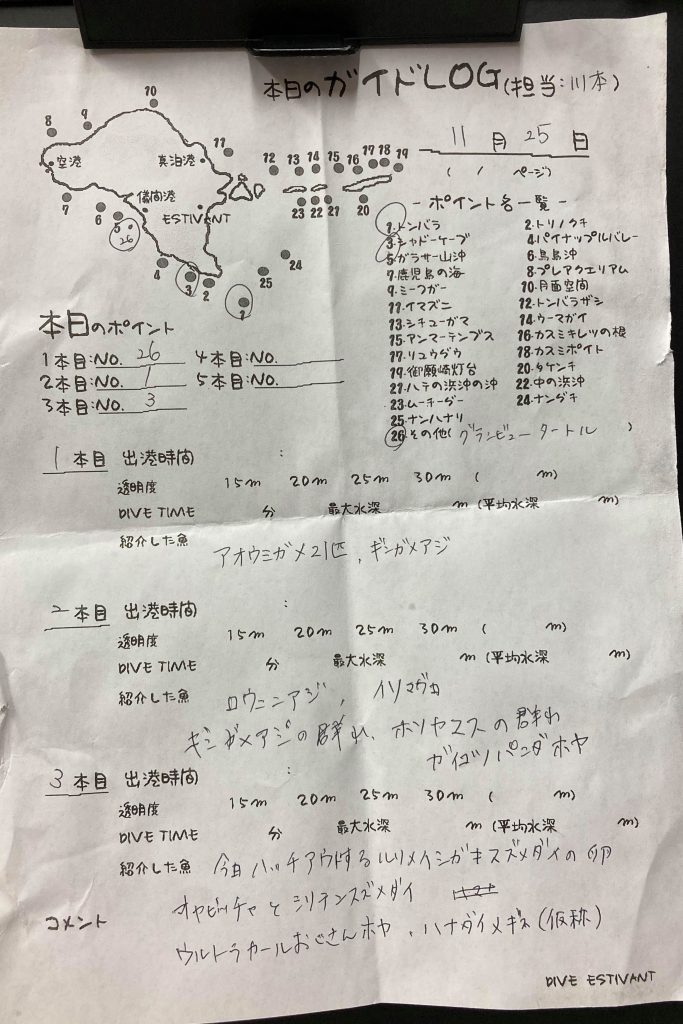 本日のガイドLOG(担当:川本)
11月25日
( / ページ)
10
8 9
11
空港 真泊港
12 13 14 15 16 17 18 19
7 儀間港
6 5 ESTIVANT
23 22 21 20
26
24
4 3 2 25
1
- ポイント名一覧 -
1.トンバラ 2.トリノクチ
3.シャドーケーブ 4.パイナップルバレー
5.ガラサー山沖 6.鳥島沖
7.鹿児島の海 8.プレアクエリアム
9.ミーフガー 10.月面空間
11.イマズニ 12.トンバラザシ
13.シチューガマ 14.ウーマガイ
15.アンマーテンブス 16.カスミキレツの根
17.リュウグウ 18.カスミポイント
19.御願崎灯台 20.タケンチ
21.ハテの浜沖の沖 22.中の浜沖
23.ムーチーグー 24.ナングチ
25.ナンハナリ
26.その他(グランビュータートル)
本日のポイント
1本目:NO. 26 4本目:NO.
2本目:NO. 1 5本目:NO.
3本目:NO. 3
1本目 出港時間 :
透明度 15m 20m 25m 30m ( m)
DIVE TIME 分 最大水深 m (平均水深 m)
紹介した魚 アオウミガメ21匹、ギンガメアジ
2本目 出港時間 :
透明度 15m 20m 25m 30m ( m)
DIVE TIME 分 最大水深 m (平均水深 m)
紹介した魚 ロウニンアジ、イソマグロ
ギンガメアジの群れ、ホソヤスズの群れ
ガイコツパンダホヤ
3本目 出港時間 :
透明度 15m 20m 25m 30m ( m)
DIVE TIME 分 最大水深 m (平均水深 m)
紹介した魚 今日ハッチアウトするルリメイシガキスズメダイの卵
オヤビッチャとシリテンスズメダイ
コメント ウルトラカールおじさんホヤ、ハナダイメギス(仮称)
DIVE ESTIVANT